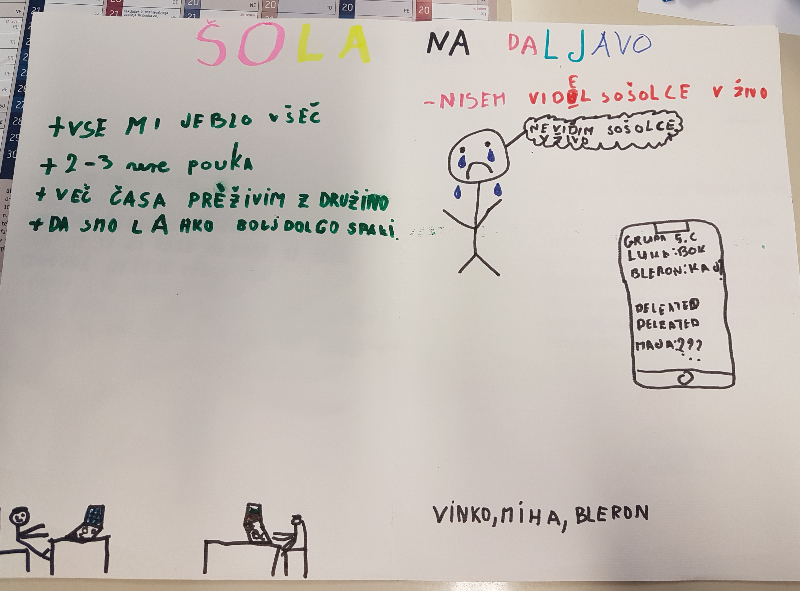 ŠOLA NA DALJAVO
+VSE MI JEBLO VŠEČ
+2-3 ure pouka
+VEČ ČASA PREŽIVIM Z DRUŽINO
+DA SMO LAAHKO BOLJ DOLGO SPALI
-NISEM VIDEL SOŠOLCE V ŽIVO
NEVIDIM SOŠOLCE
V ŽIVO
GRUPA 5.C
LUKA:BOK
BLERON:KAJ
DELEATED
DELEATED
MAJA:???
...
VINKO, MIHA, BLERON